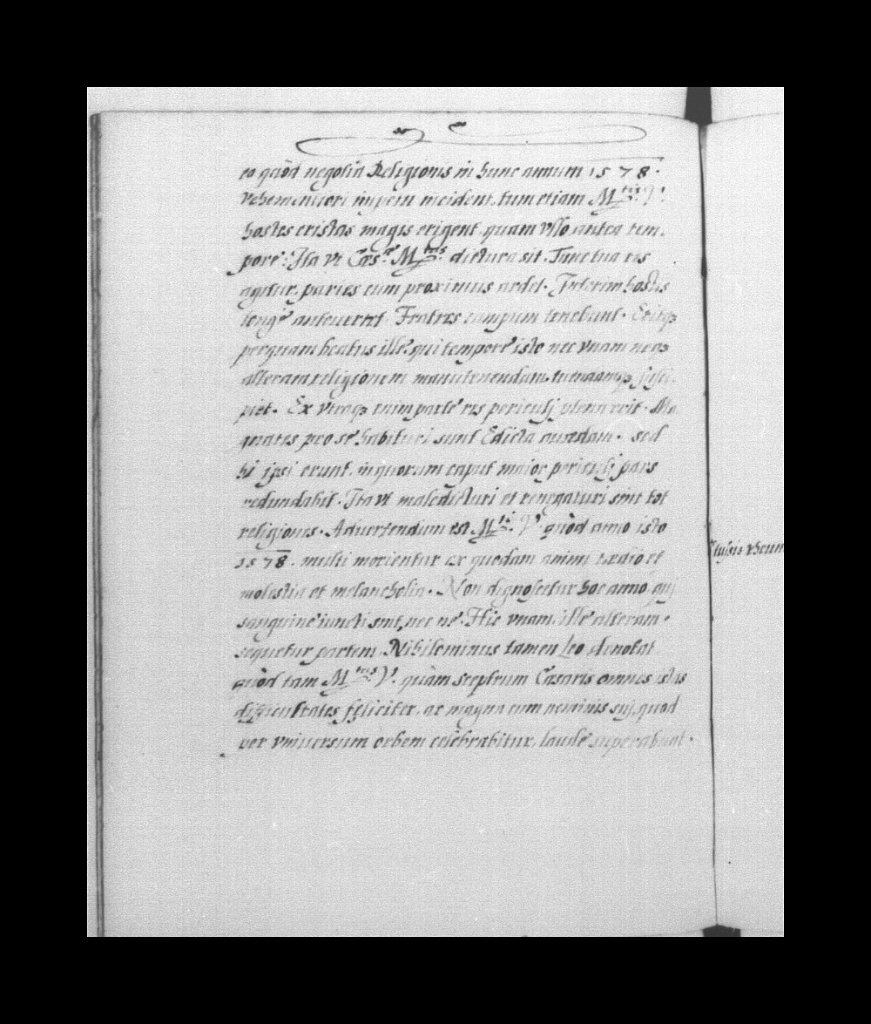 eo quòd negotia Religionis in hunc annum 1578.
vehementiori impetu incident, tum etiam M.tis V.
hostes cristas magis erigent, quam vllo antea tem-
pore: Ita vt Cas.a M.tas dictura sit. Tunc tua res
agitur, paries cum proximus ardet. Interim hostis
longe anteuertet. Fratres campum tenebunt. Eritq3
perquam beatus ille, qui tempore isto nec vnam neq3
alteram religionem manutenendam, tuendamq3 susci-
piet. Ex vtraq3 enim parte res periculj plena erit. Ma
gnates pro se habituri sunt Edicta quædam, sed
hi ipsi erunt, in quorum caput maior periculj pars
redundabit. Ita vt maledicturi et renegaturi sint tot
religiones. Aduertendum est M.ti V. quòd anno isto
1578. multi morientur ex quodam animi tædio et
molestia et melancholia. Non dignoscetur hoc anno, qui
sanguine iuncti sint, nec ne. Hic vnam, ille alteram
sequetur partem. Nihilominus tamen Leo denotat
quòd tam M.tas V. quàm sceptrum Cæsaris omnes istas
difficultates feliciter, ac magna cum nominis sui, quod
per vniuersum orbem celebrabitur, laude superabunt.
vheum